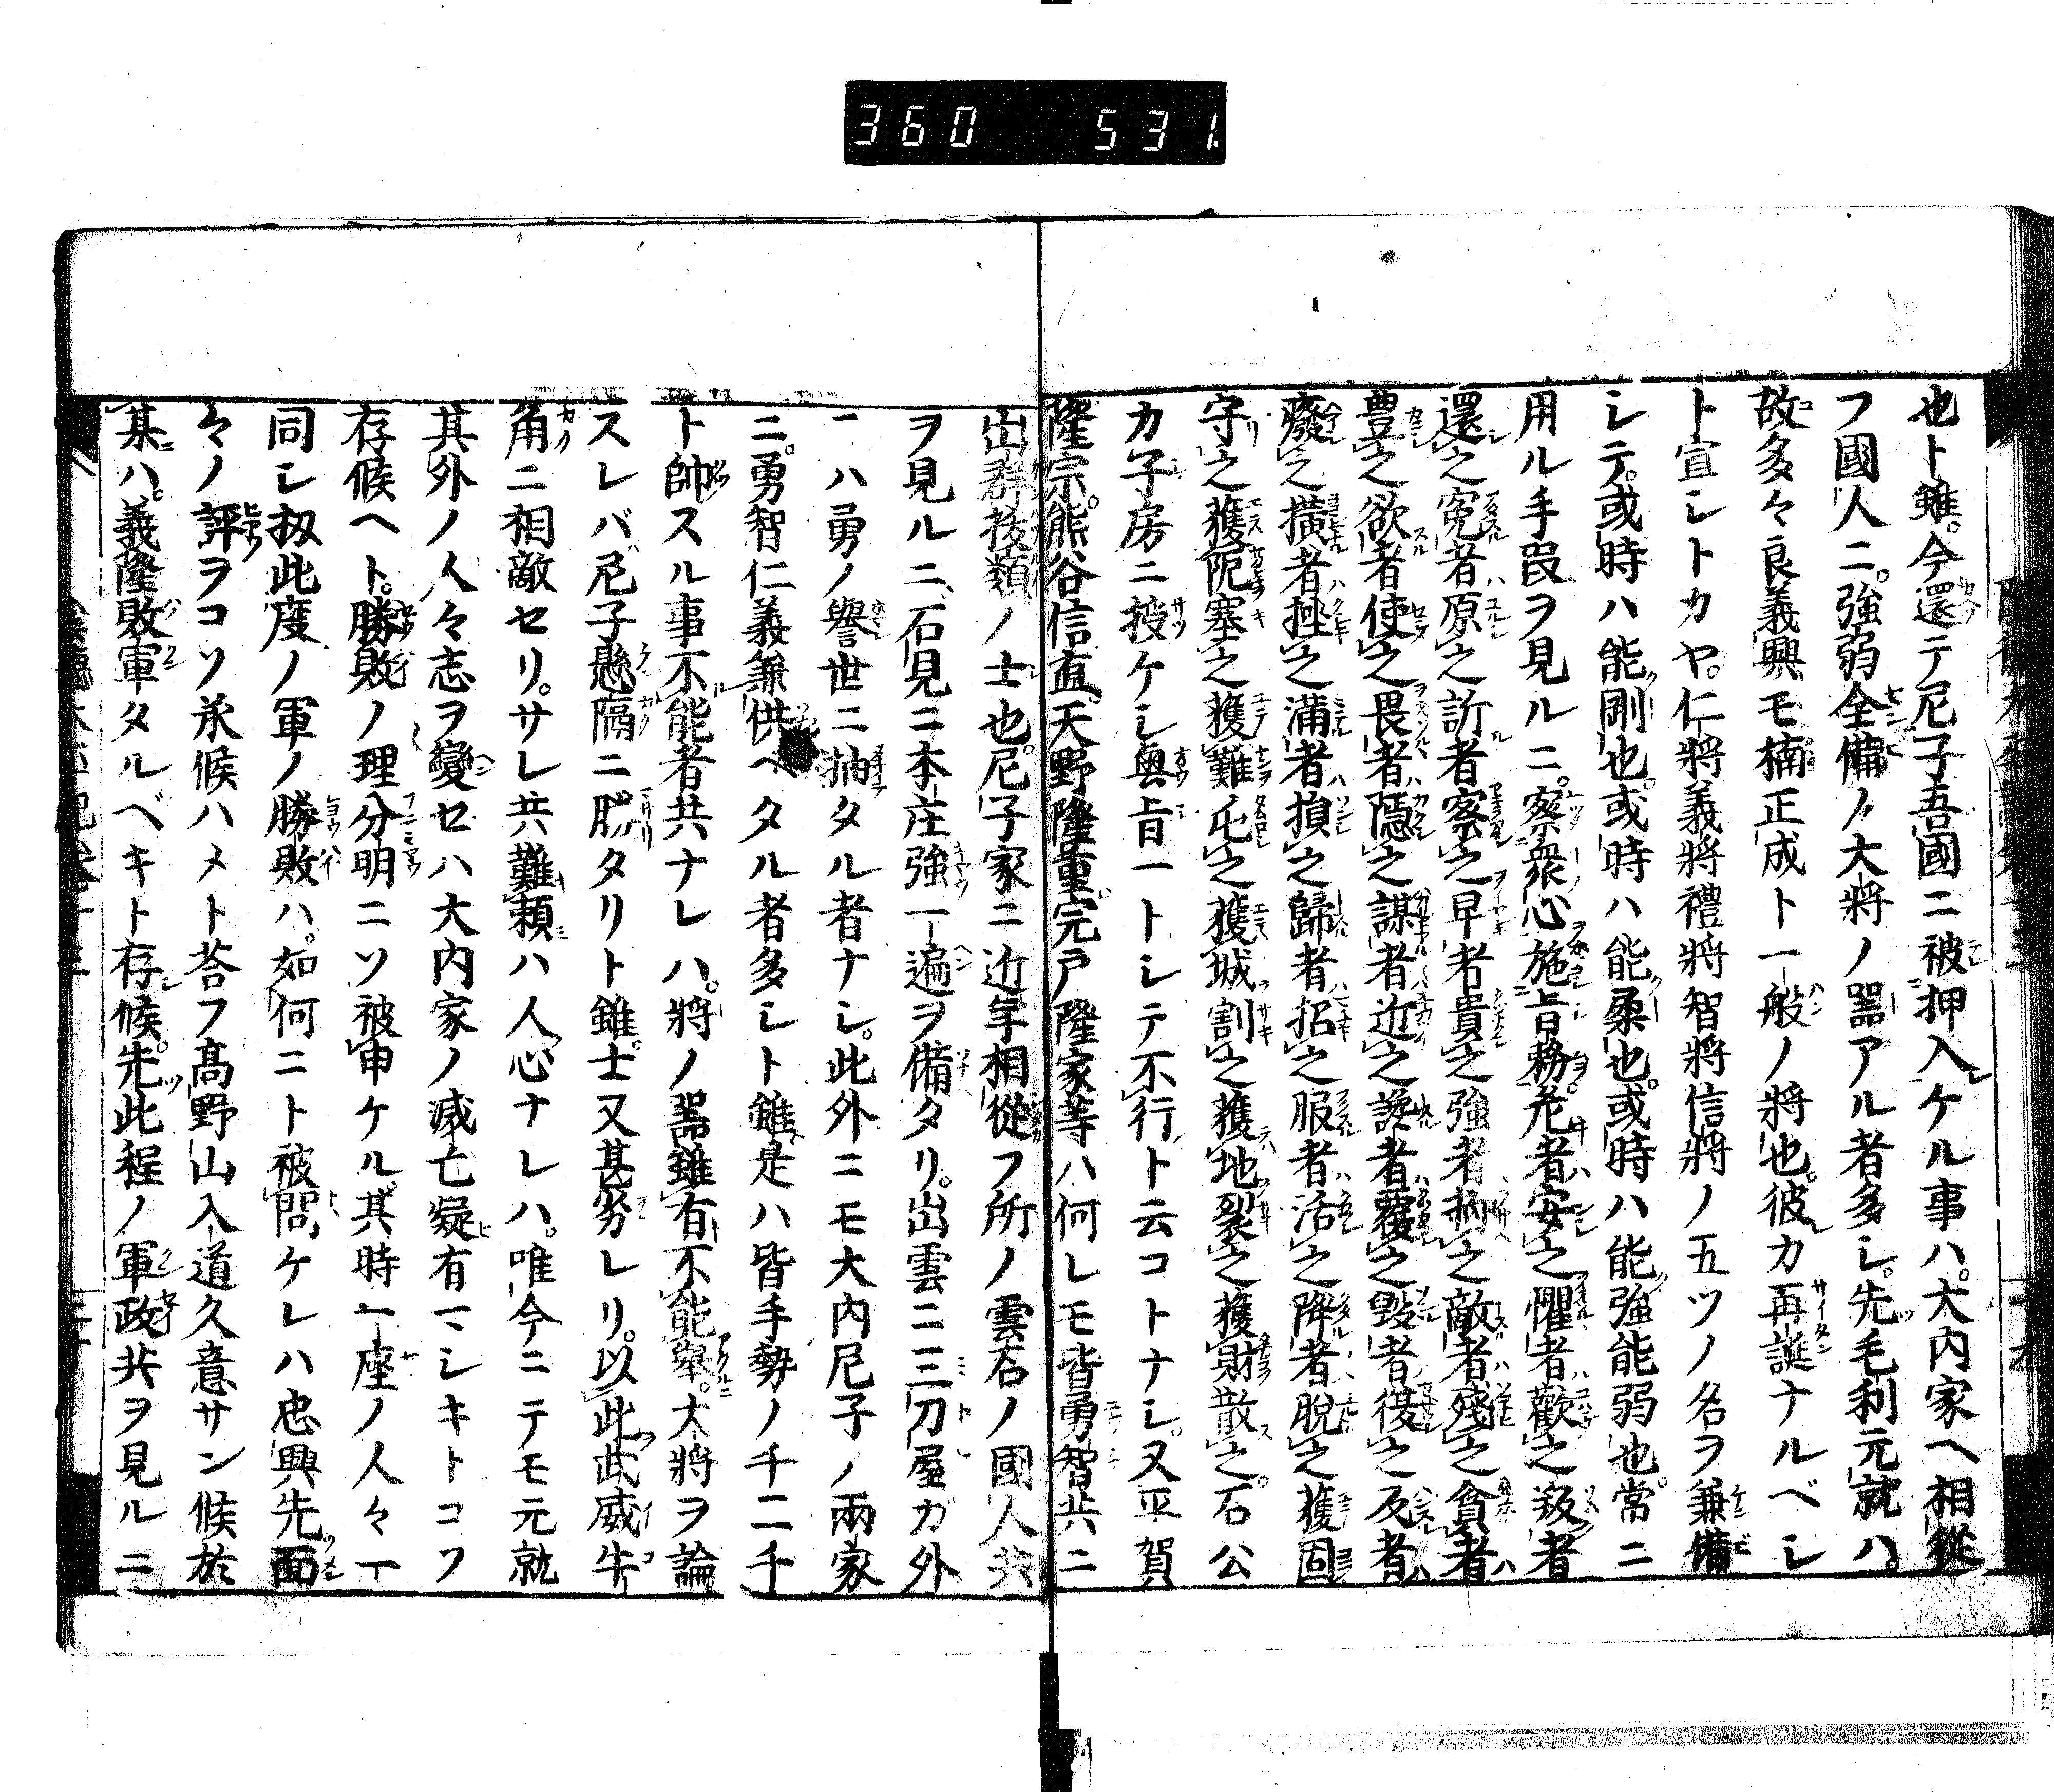 360 531
也ト雖。今還テ尼子吾國ニ被押入ケル事ハ。大内家ヘ相從
フ國人ニ。強弱全備ノ大將ノ器アル者多シ。先毛利元就ハ。
故多々良義興モ楠正成ト一般ノ將也。彼カ再誕ナルベシ
ト宣シトカヤ。仁將義將禮將智將信將ノ五ツノ名ヲ兼備
シテ。或時ハ能剛也。或時ハ能柔也。或時ハ能強能弱也。常ニ
用ル手段ヲ見ルニ。察衆心施旨務。危者安之懼者歡之叛者
還之寃者原之訢者察之早者貴之強者抑之敵者殘之貪者
豊之欲者使之畏者隱之謀者近之讒者覆之毀者復之反者
癈之横者挫之滿者損之歸者招之服者活之降者脱之獲固
守之獲阨塞之獲難屯之獲城割之獲地裂之獲財散之。石公
カ子房ニ授ケシ奥旨一トシテ不行ト云コトナシ。又平賀
隆宗。熊谷信直。天野隆重宍戸隆家等ハ何レモ皆勇智共ニ
出群抜類ノ士也。尼子家ニ近年相從フ所ノ雲石ノ國人共
ヲ見ルニ、石見ニ本庄強一遍ヲ備タリ。出雲ニ三刀屋ガ外
ハ勇ノ譽世ニ抽タル者ナシ。此外ニモ大内尼子ノ兩家
ニ。勇智仁義兼供ヘタル者多シト雖是ハ皆手勢ノ千二千
ト帥スル事不能者共ナレハ。將ノ器雖有不能舉。大將ヲ論
スレバ尼子懸隔ニ勝タリト雖。士又甚劣レリ。以此武威牛
角ニ相敵セリ。サレ共難頼ハ人心ナレハ。唯今ニテモ元就
其外ノ人々志ヲ變セハ大内家ノ滅亡疑有マシキトコソ
存候ヘト。勝敗ノ理分明ニソ被申ケル。其時一座ノ人々一
同シ扨此度ノ軍ノ勝敗ハ。如何ニト被問ケレハ忠興先面
々ノ評ヲコソ承候ハメト荅フ髙野山入道久意サン候於
某ハ。義隆敗軍タルベキト存候。先此程ノ軍政共ヲ見ルニ